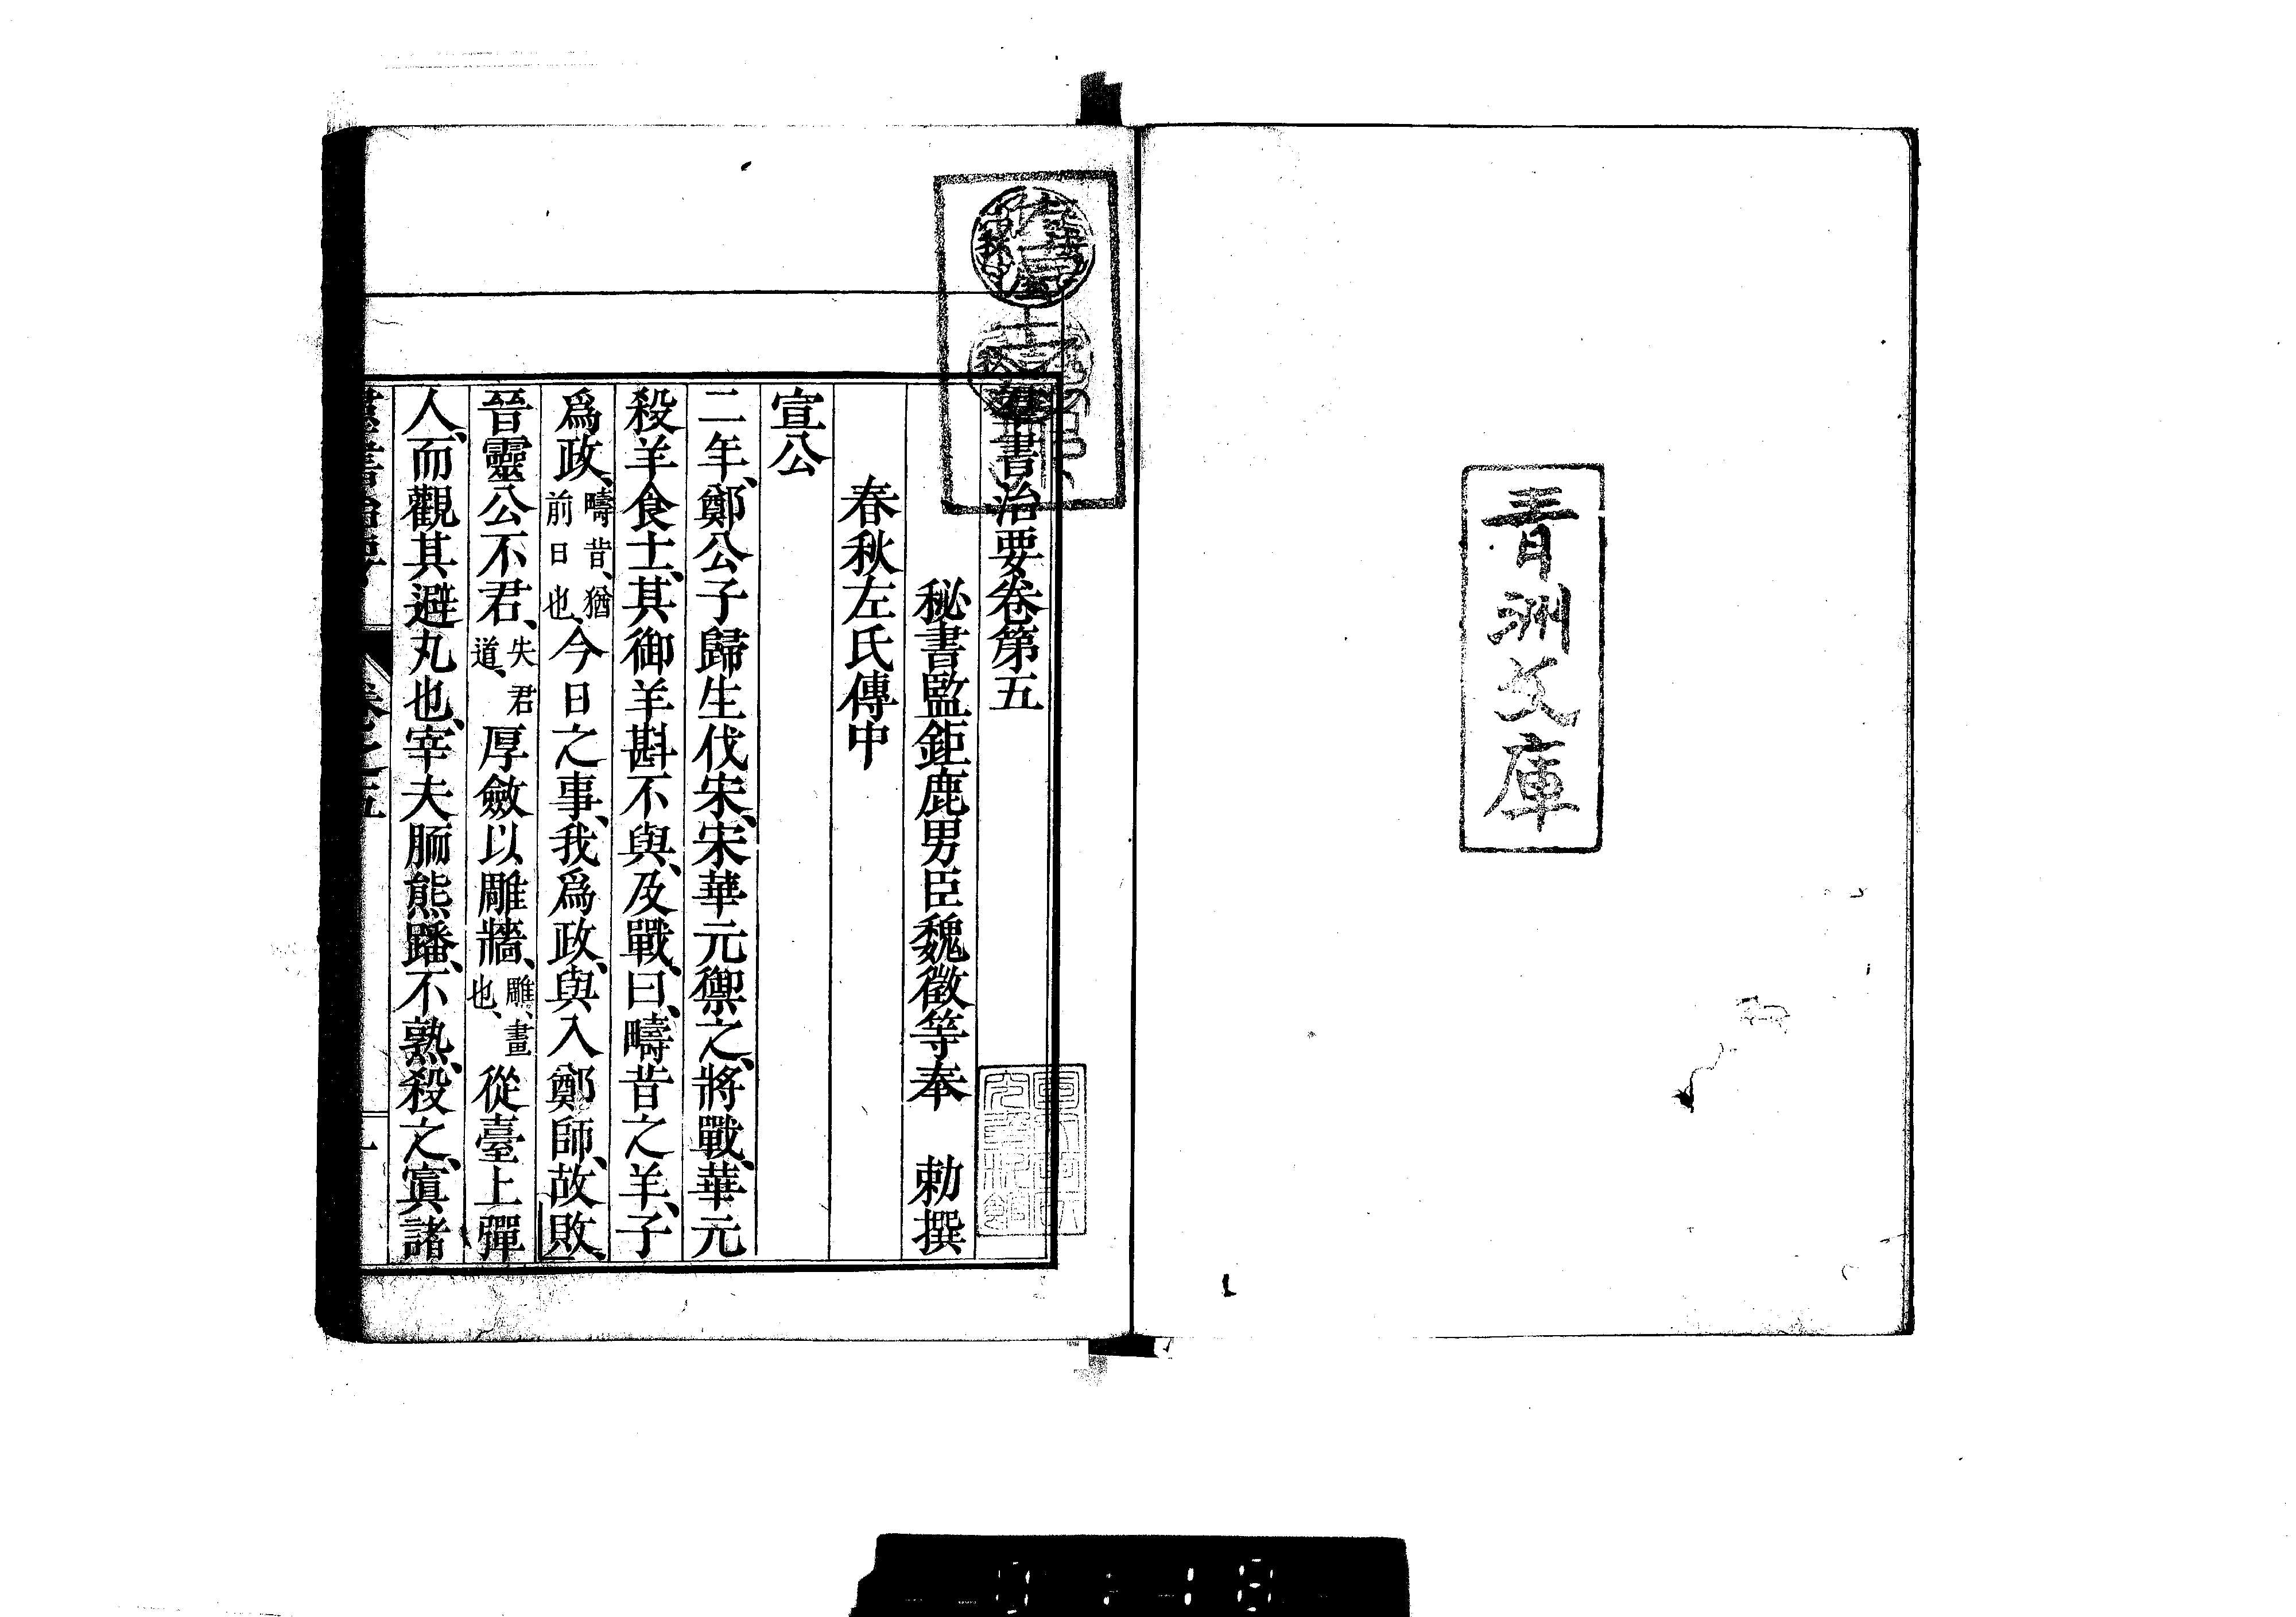 青洲文庫
群書治要卷第五
秘書監鉅鹿男臣魏徵等奉　勅撰
春秋左氏傳中
宣公
二年、鄭公子歸生伐宋、宋華元禦之、將戰、華元
殺羊食士、其御羊斟不與、及戰、曰、疇昔之羊、子
爲政、疇昔、猶前日也、今日之事、我爲政、與入鄭師、故敗、
晉靈公不君、失君道、厚斂以雕牆、雕、畫也、從臺上彈
人、而觀其避丸也、宰夫胹熊蹯、不熟、殺之、寘諸
卷之五